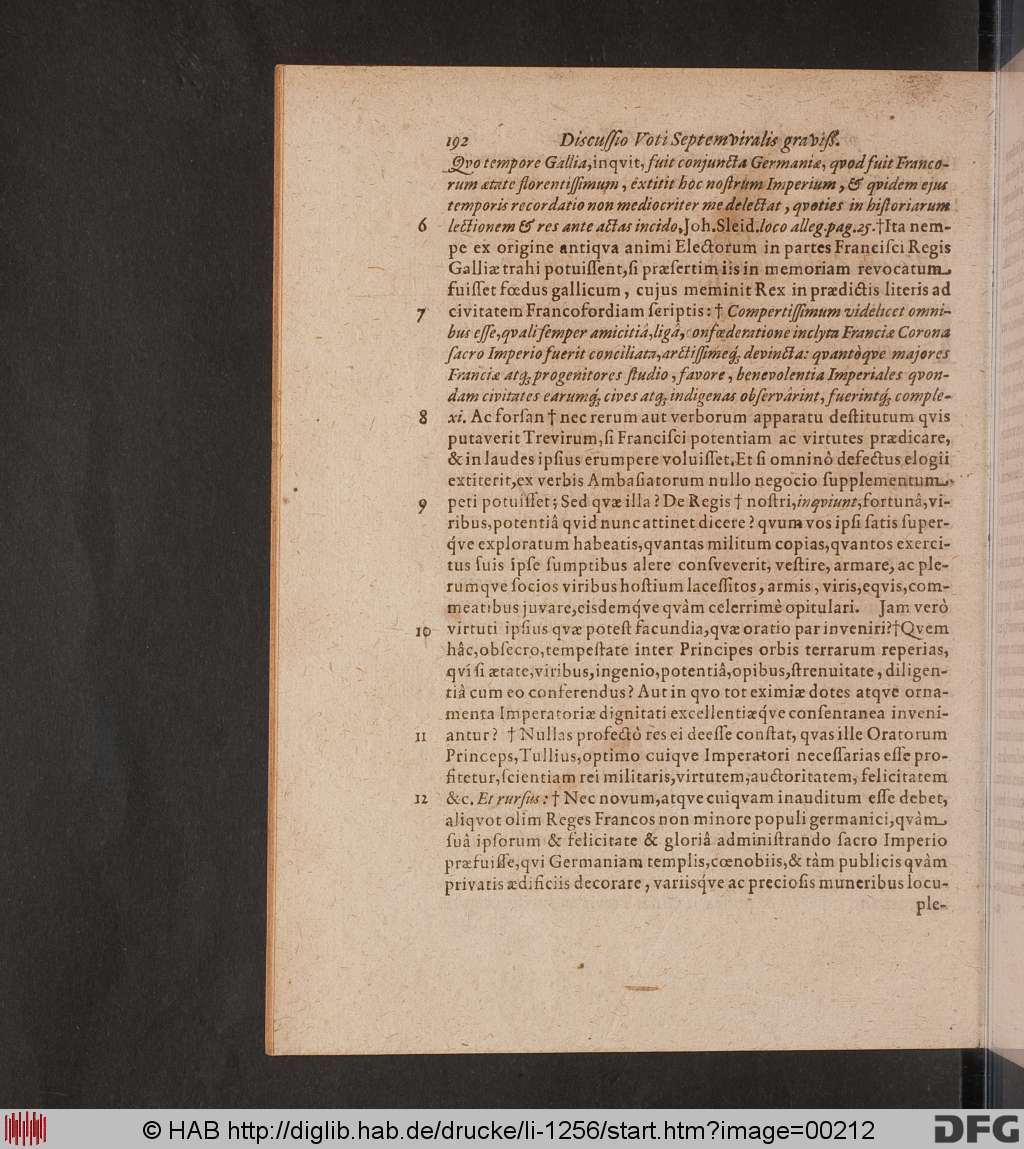 192 Discuſſio Voti Septemviralis graviſſ.
Qvo tempore Gallia, inqvit, fuit conjuncta Germaniæ, qvod fuit Franco-
rum ætate florentiſſimum, éxtitit hoc noſtrùm Imperium, & qvidem ejus
temporis recordatio non mediocriter me delectat, qvoties in hiſtoriarum
6 lectionem & res ante actas incido, Joh. Sleid. loco alleg. pag. 25. † Ita nem-
pe ex origine antiqva animi Electorum in partes Franciſci Regis
Galliæ trahi potuiſſent, ſi præſertim iis in memoriam revocatum
fuiſſet fœdus gallicum, cujus meminit Rex in prædictis literis ad
7 civitatem Francofordiam ſcriptis: † Compertiſſimum videlicet omni-
bus eſſe, qvali ſemper amicitiâ, ligâ, confœderatione inclyta Franciæ Corona
ſacro Imperio fuerit conciliata, arctiſſimeq́; devincta: qvantòqve majores
Franciæ atq́; progenitores ſtudio, favore, benevolentia Imperiales qvon-
dam civitates earumq́; cives atq́; indigenas obſervârint, fuerintq́; comple-
8 xi. Ac forſan † nec rerum aut verborum apparatu deſtitutum qvis
putaverit Trevirum, ſi Franciſci potentiam ac virtutes prædicare,
& in laudes ipſius erumpere voluiſſet. Et ſi omninò defectus elogii
extiterit, ex verbis Ambaſiatorum nullo negocio ſupplementum
9 peti potuiſſet; Sed qvæ illa? De Regis † noſtri, inqviunt, fortunâ, vi-
ribus, potentiâ qvid nunc attinet dicere? qvum vos ipſi ſatis ſuper-
q́ve exploratum habeatis, qvantas militum copias, qvantos exerci-
tus ſuis ipſe ſumptibus alere conſveverit, veſtire, armare, ac ple-
rumqve ſocios viribus hoſtium laceſſitos, armis, viris, eqvis, com-
meatibus juvare, eisdemq́ve qvàm celerrimè opitulari. Jam verò
10 virtuti ipſius qvæ poteſt facundia, qvæ oratio par inveniri? † Qvem
hâc, obſecro, tempeſtate inter Principes orbis terrarum reperias,
qvi ſi ætate, viribus, ingenio, potentiâ, opibus, ſtrenuitate, diligen-
tiâ cum eo conferendus? Aut in qvo tot eximiæ dotes atqve orna-
menta Imperatoriæ dignitati excellentiæq́ve conſentanea inveni-
11 antur? † Nullas profectò res ei deeſſe conſtat, qvas ille Oratorum
Princeps, Tullius, optimo cuiqve Imperatori neceſſarias eſſe pro-
fitetur, ſcientiam rei militaris, virtutem, auctoritatem, felicitatem
12 &c. Et rurſus: † Nec novum, atqve cuiqvam inauditum eſſe debet,
aliqvot olim Reges Francos non minore populi germanici, qvàm
ſuâ ipſorum & felicitate & gloriâ adminiſtrando ſacro Imperio
præfuiſſe, qvi Germaniam templis, cœnobiis, & tàm publicis qvàm
privatis ædificiis decorare, variisq́ve ac precioſis muneribus locu-
ple-
© HAB http://diglib.hab.de/drucke/li-1256/start.htm?image=00212
DFG